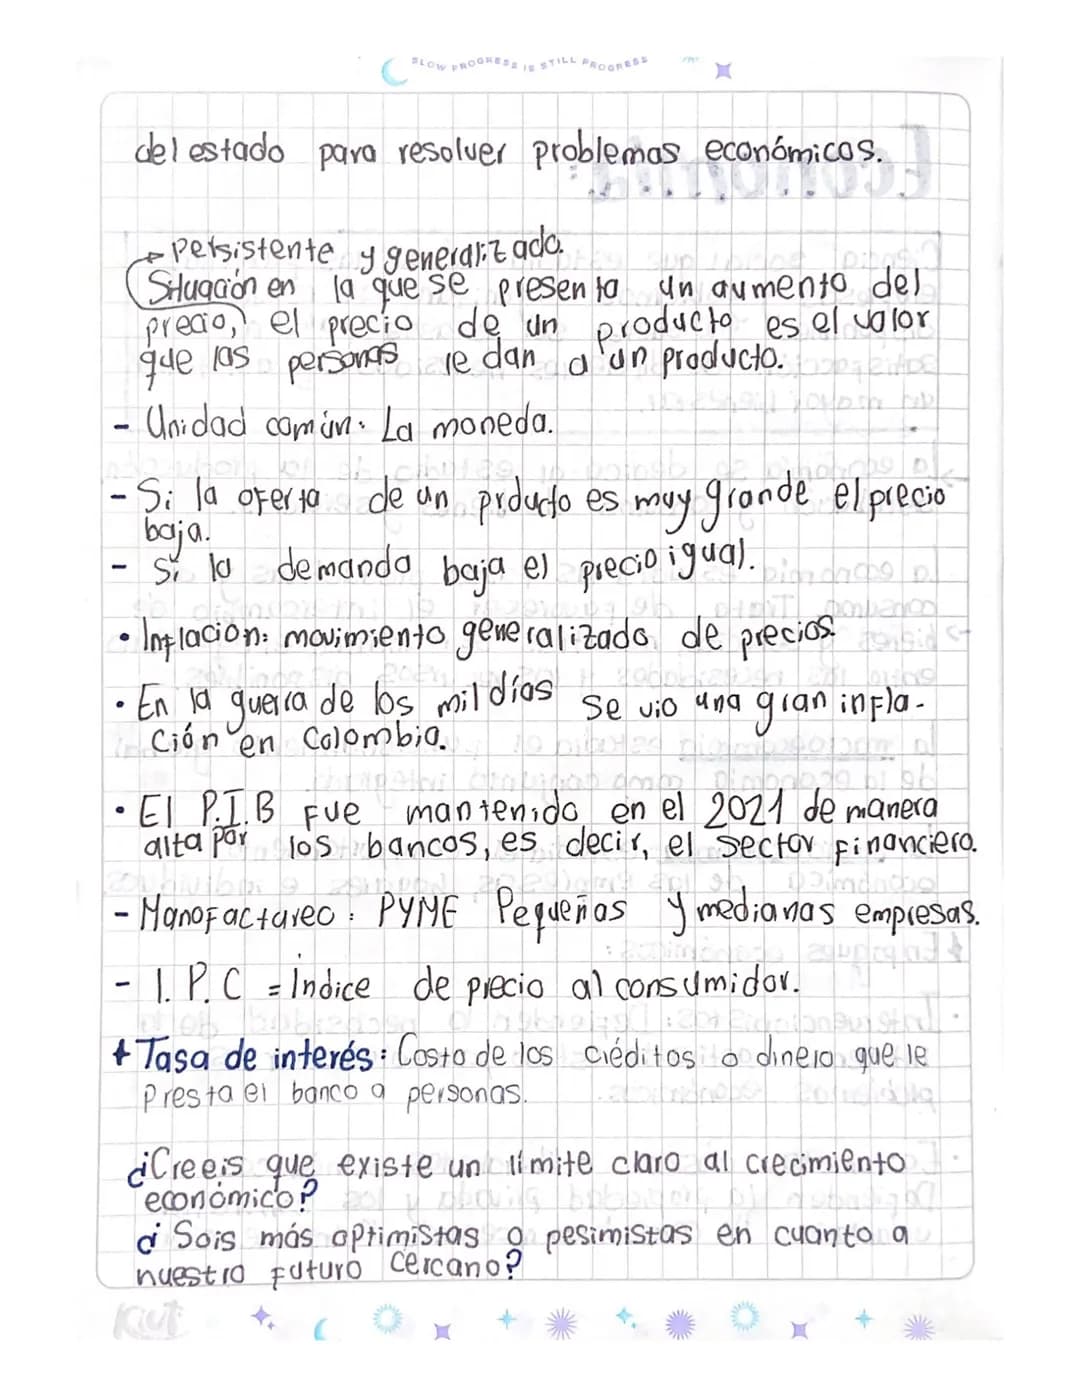 SLOW PROGRESS IS STILL PROGRESS
del estado para resolver problemas económicos.
persistente y generalizado.
Situación en la que se presenta un aumento del
precio, el precio de un producto es el valor
que las personas le dan a un producto.
- Unidad común: La moneda.
- Si la oferta de un prducto es muy grande el precio
baja.
- Si la demanda baja el precio igual.
• Inflacion: movimiento generalizado de precios.
• En la guerra de los mil días se vio una gran infla-
ción en Colombia.
• El P.I.B fue mantenido en el 2021 de manera
alta por los bancos, es decir, el sector financiero.
- Manofactureo: PYME Pequeñas y medianas empresas.
- I.P.C = Índice de precio al consumidor.
+ Tasa de interés: Costo de los créditos o dinero que le
presta el banco a personas.
¿Creeis que existe un límite claro al crecimiento
económico?
¿Sois más optimistas o pesimistas en cuanto a
nuestro futuro cercano?
Kiut